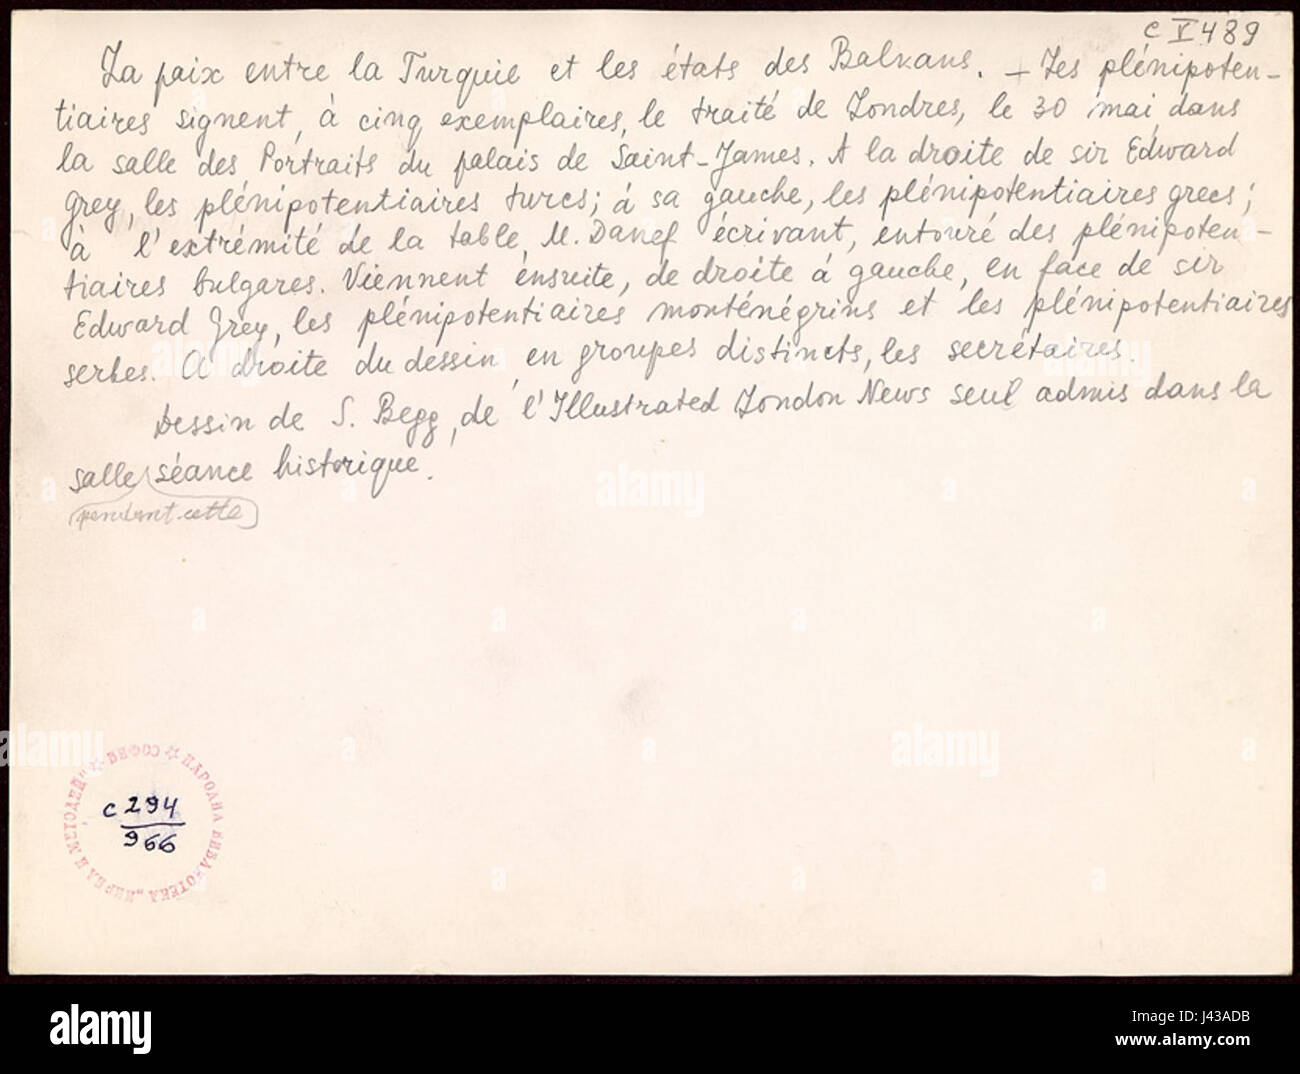 C V 489
La paix entre la Turquie et les états des Balkans. — Les plénipoten-
tiaires signent, à cinq exemplaires, le traité de Londres, le 30 mai dans
la salle des Portraits du palais de Saint-James. A la droite de sir Edward
Grey, les plénipotentiaires turcs; à sa gauche, les plénipotentiaires grecs;
à l'extrémité de la table, M. Danef écrivant, entouré des plénipoten-
tiaires bulgares. Viennent ensuite, de droite à gauche, en face de sir
Edward Grey, les plénipotentiaires monténégrins et les plénipotentiaires
serbes. A droite du dessin, en groupes distincts, les secrétaires.
Dessin de S. Begg, de l'Illustrated London News seul admis dans la
salle séance historique.
pendant cette
НАРОДНА БИБЛИОТЕКА „КИРИЛ И МЕТОДИЙ" ☆ СОФИЯ ☆
C 294
966
alamy
Image ID: J43ADB
www.alamy.com